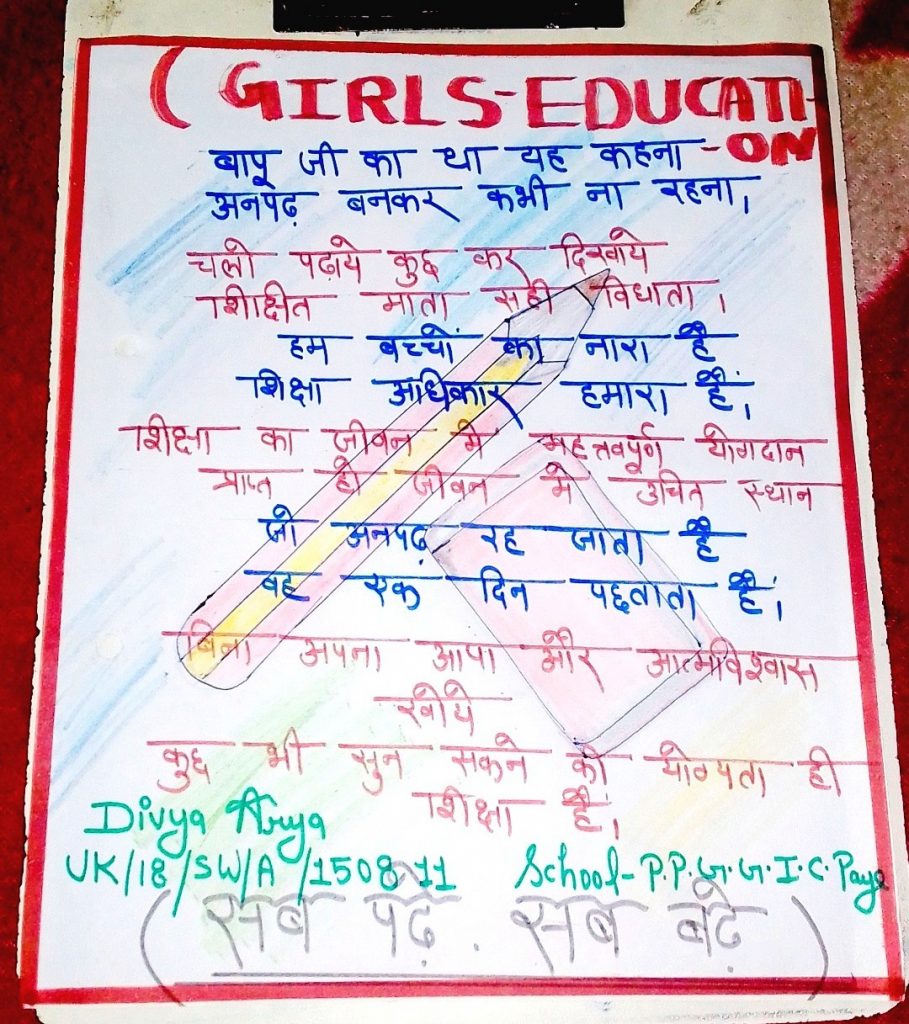 (GIRLS-EDUCATI-
ON
बापू जी का था यह कहना -
अनपढ़ बनकर कभी ना रहना।
चलो पढ़ाये कुछ कर दिखाये
शिक्षित माता सही विधाता।
हम बच्चों का नारा है
शिक्षा अधिकार हमारा हैं।
शिक्षा का जीवन मे महत्तवपूर्ण योगदान
प्राप्त हो जीवन मे उचित स्थान
जो अनपढ़ रह जाता है
वह एक दिन पछताता है।
बिना अपना आपा और आत्मविश्वास
खोये
कुछ भी सुन सकने की योग्यता ही
शिक्षा हैं।
Divya Arya
UK/18/SW/A/1508 11 School- P.P.G.G.I.C.
(सब पढ़े. सब बढ़े)